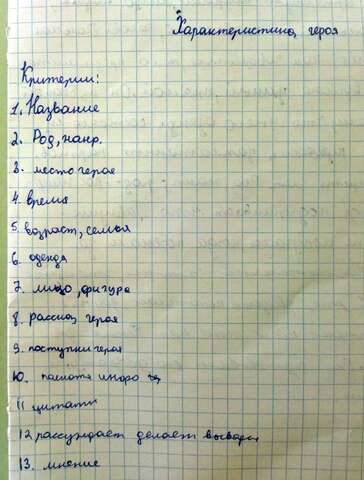 Характеристика, героя
Критерии:
1. Название
2. Род, жанр.
3. место героя
4. время
5. возраст, семья
6. одежда
7. лицо, фигура
8. рассказ, героя
9. поступки героя
10.
11 цитаты
12 рассуждает делает выводы
13. мнение